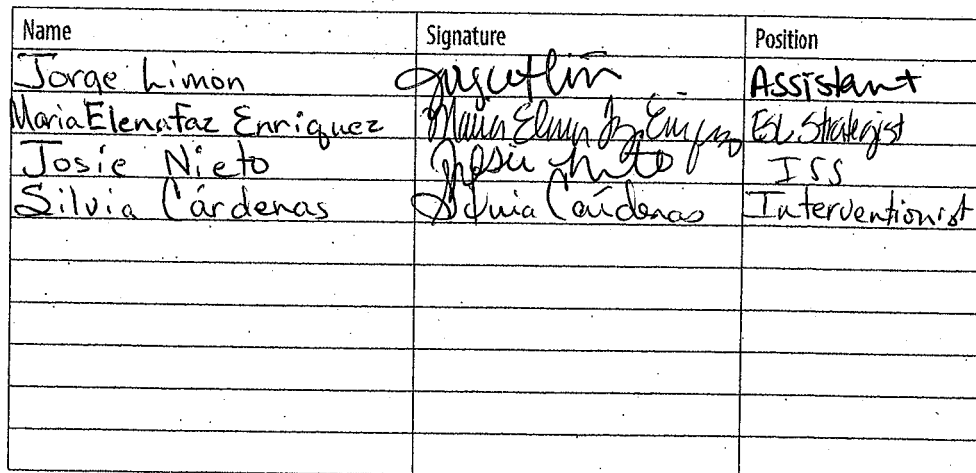 Name Signature Position
Jorge Limon Assistant
Maria Elena Faz Enriquez Maria Elena Faz Enriquez ESL Strategist
Josie Nieto Josie Nieto ISS
Silvia Cárdenas Silvia Cárdenas Interventionist